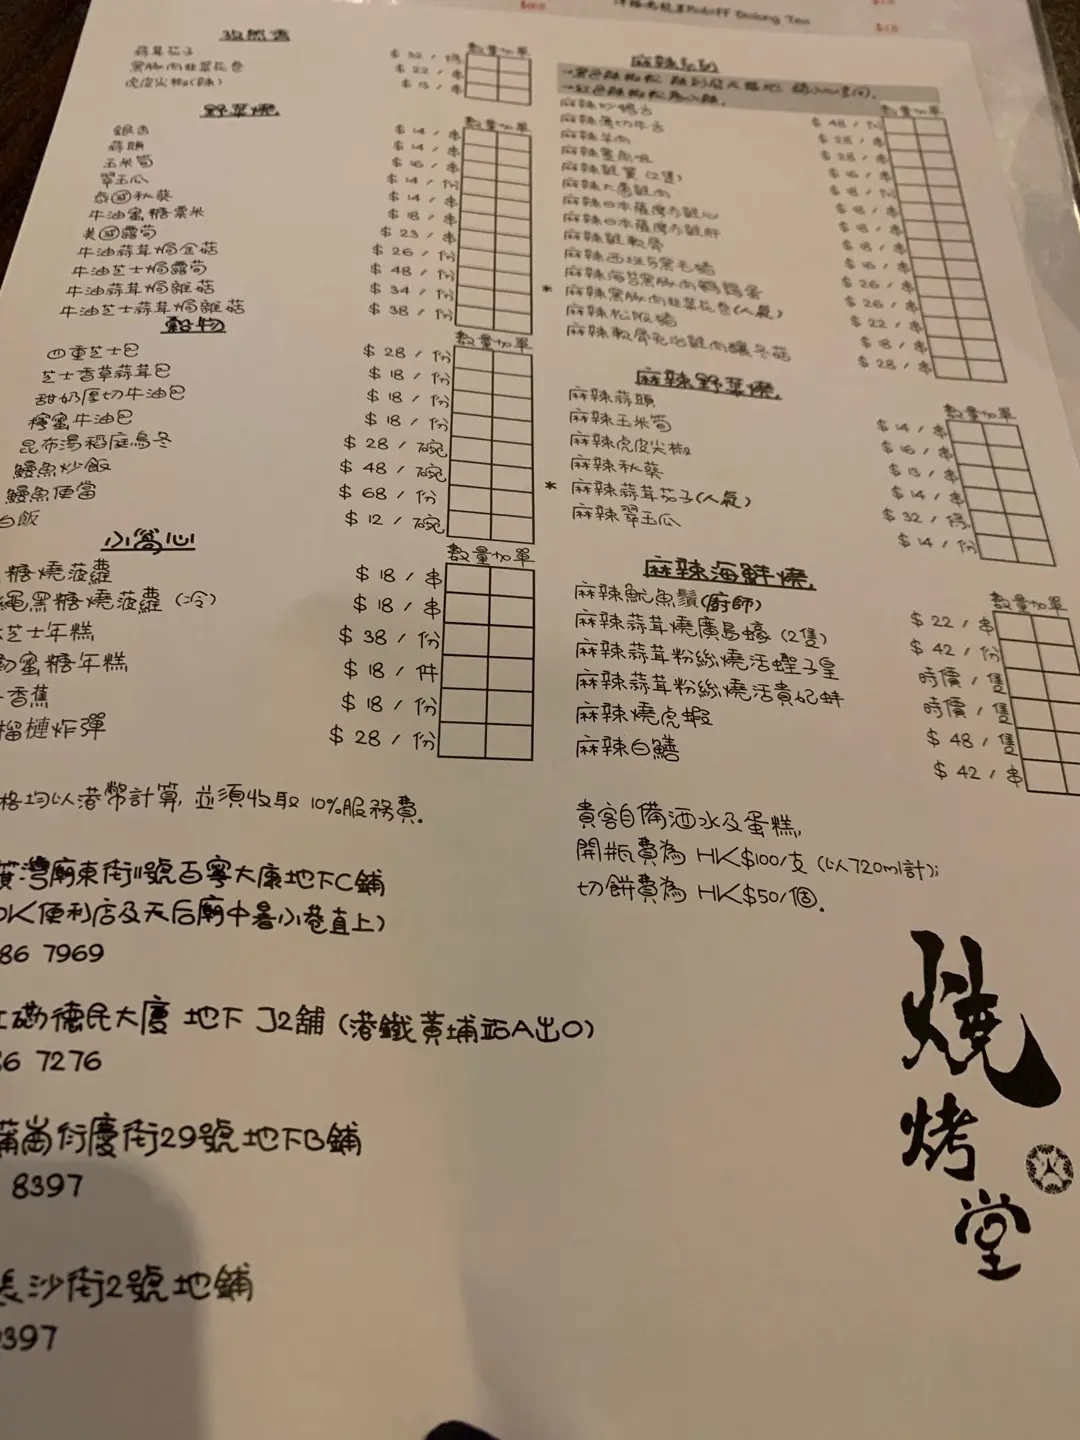 Dolung Tea
孜然燒
數量加單
蒜茸茄子 $ 32 / 條
黑豚肉韭菜花卷 $ 22 / 串
虎皮尖椒(辣) $ 15 / 串
野菜燒
數量加單
銀杏 $ 14 / 串
蒜頭 $ 14 / 串
玉米筍 $ 16 / 串
翠玉瓜 $ 14 / 份
泰國秋葵 $ 14 / 串
牛油蜜糖粟米 $ 18 / 串
美國露筍 $ 23 / 串
牛油蒜茸焗金菇 $ 26 / 份
牛油芝士焗露筍 $ 48 / 份
牛油蒜茸焗雜菇 $ 34 / 份
牛油芝士蒜茸焗雜菇 $ 38 / 份
穀物
數量加單
四重芝士巴 $ 28 / 份
芝士香草蒜茸巴 $ 18 / 份
甜奶厚切牛油巴 $ 18 / 份
檸蜜牛油巴 $ 18 / 份
昆布湯稻庭烏冬 $ 28 / 碗
鰻魚炒飯 $ 48 / 碗
鰻魚便當 $ 68 / 份
白飯 $ 12 / 碗
小窩心
數量加單
糖燒菠蘿 $ 18 / 串
繩黑糖燒菠蘿 (冷) $ 18 / 串
芝士年糕 $ 38 / 份
蜜糖年糕 $ 18 / 件
香蕉 $ 18 / 份
榴槤炸彈 $ 28 / 份
格均以港幣計算, 並須收取 10%服務費。
灣廟東街11號百寧大廈地下C鋪
OK便利店及天后廟中暑小巷直上)
86 7969
磡德民大廈 地下 J2舖 (港鐵黃埔站A出口)
86 7276
蒲崗衍慶街29號地下B鋪
8397
長沙街2號地鋪
9397
麻辣系列
數量加單
麻辣炒鴨舌 $ 48 / 份
麻辣薄切牛舌 $ 28 / 串
麻辣羊肉 $ 28 / 串
麻辣墨魚咀 $ 16 / 串
麻辣雞翼 (2隻) $ 18 / 份
麻辣大唐雞肉 $ 18 / 串
麻辣日本薩摩赤雞心 $ 18 / 串
麻辣日本薩摩赤雞肝 $ 18 / 串
麻辣雞軟骨 $ 16 / 串
麻辣西班牙黑毛豬 $ 26 / 串
麻辣海苔黑豚肉鵪鶉蛋 $ 26 / 串
* 麻辣黑豚肉韭菜花卷(人氣) $ 22 / 串
麻辣松阪豬 $ 18 / 串
麻辣軟骨免治雞肉釀冬菇 $ 28 / 串
麻辣野菜燒
數量加單
麻辣蒜頭 $ 14 / 串
麻辣玉米筍 $ 16 / 串
麻辣虎皮尖椒 $ 15 / 串
麻辣秋葵 $ 14 / 串
* 麻辣蒜茸茄子(人氣) $ 32 / 條
麻辣翠玉瓜 $ 14 / 份
麻辣海鮮燒
數量加單
麻辣魷魚鬚(廚師) $ 22 / 串
麻辣蒜茸燒廣島蠔 (2隻) $ 42 / 份
麻辣蒜茸粉絲燒活蟶子皇 時價 / 隻
麻辣蒜茸粉絲燒活貴妃蚌 時價 / 隻
麻辣燒虎蝦 $ 48 / 隻
麻辣白鱔 $ 42 / 串
貴客自備酒水及蛋糕,
開瓶費為 HK$100/支 (以720ml計);
切餅費為 HK$50/個。
燒烤堂